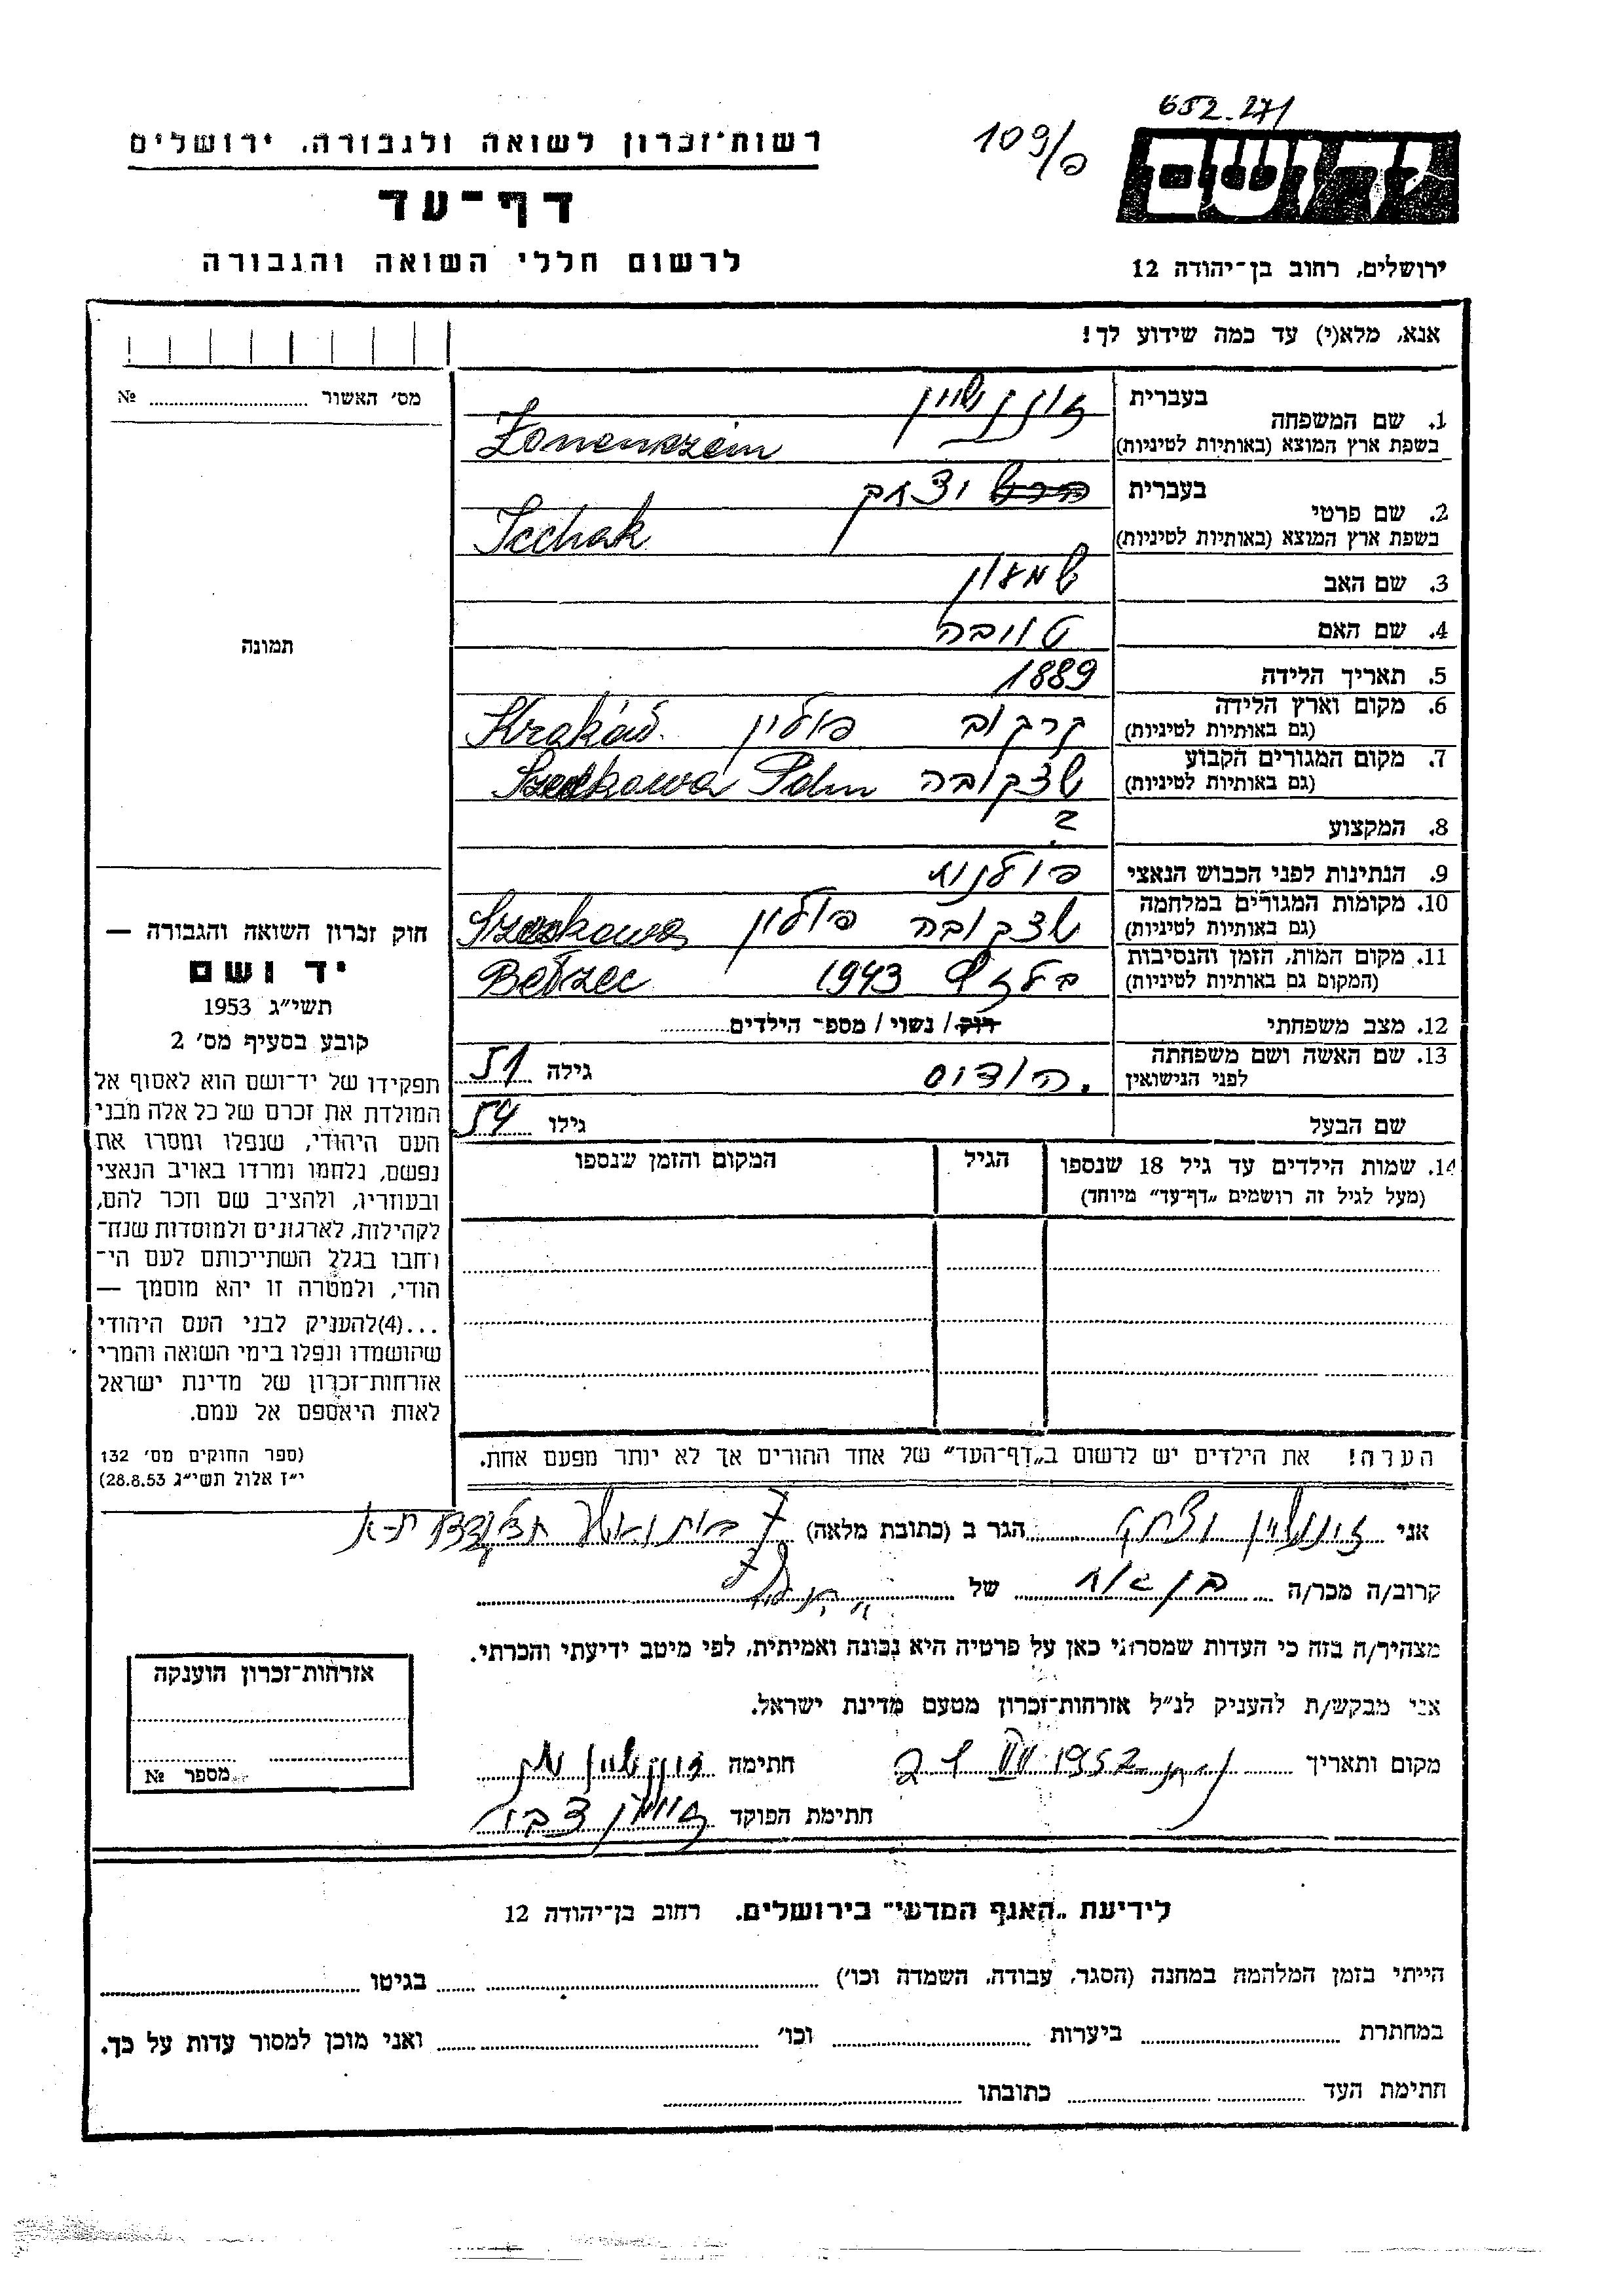 652-271
109/פ
יד ושם
רשות־זכרון לשואה ולגבורה, ירושלים
דף־עד
לרשום חללי השואה והגבורה
ירושלים, רחוב בן־יהודה 12
אנא, מלא(י) עד כמה שידוע לך!
מס׳ האשור № 
1. שם המשפחה
בעברית
בשפת ארץ המוצא (באותיות לטיניות)
Zonenszein
2. שם פרטי
בעברית
יצחק
בשפת ארץ המוצא (באותיות לטיניות)
Icchak
3. שם האב שמעון
4. שם האם טויבה
5. תאריך הלידה 1889
6. מקום וארץ הלידה
(גם באותיות לטיניות)
קרקוב פולין Kraków
7. מקום המגורים הקבוע
(גם באותיות לטיניות)
שצקובה
8. המקצוע ?
9. הנתינות לפני הכבוש הנאצי פולנית
10. מקומות המגורים במלחמה
(גם באותיות לטיניות)
שצקובה פולין
11. מקום המות, הזמן והנסיבות
(המקום גם באותיות לטיניות)
1943 Bełzec
12. מצב משפחתי רוק / נשוי / מספר הילדים
13. שם האשה ושם משפחתה
לפני הנישואין
הודוס גילה 51
שם הבעל גילו 54
14. שמות הילדים עד גיל 18 שנספו
(מעל לגיל זה רושמים „דף־עד״ מיוחד)
הגיל
המקום והזמן שנספו
הערה! את הילדים יש לרשום ב„דף־העד״ של אחד ההורים אך לא יותר מפעם אחת.
תמונה
חוק זכרון השואה והגבורה —
יד ושם
תשי״ג 1953
קובע בסעיף מס׳ 2
תפקידו של יד־ושם הוא לאסוף אל
המולדת את זכרם של כל אלה מבני
העם היהודי, שנפלו ומסרו את
נפשם, נלחמו ומרדו באויב הנאצי
ובעוזריו, ולהציב שם וזכר להם,
לקהילות, לארגונים ולמוסדות שנח־
רחבו בגלל השתייכותם לעם הי־
הודי, ולמטרה זו יהא מוסמך —
...(4)להעניק לבני העם היהודי
שהושמדו ונפלו בימי השואה והמרי
אזרחות־זכרון של מדינת ישראל
לאות היאספם אל עמם.
(ספר החוקים מס׳ 132
י״ז אלול תשי״ג 28.8.53)
אני הגר ב (כתובת מלאה) 7
קרוב/ה מכר/ה בן אח של
מצהיר/ה בזה כי העדות שמסרתי כאן על פרטיה היא נכונה ואמיתית, לפי מיטב ידיעתי והכרתי.
אני מבקש/ת להעניק לנ״ל אזרחות־זכרון מטעם מדינת ישראל.
מקום ותאריך חתימה
חתימת הפוקד
אזרחות־זכרון הוענקה
מספר №
לידיעת „האגף המדעי״ בירושלים, רחוב בן־יהודה 12
הייתי בזמן המלחמה במחנה (הסגר, עבודה, השמדה וכו׳) בגיטו
במחתרת ביערות וכו׳ ואני מוכן למסור עדות על כך.
חתימת העד כתובתו